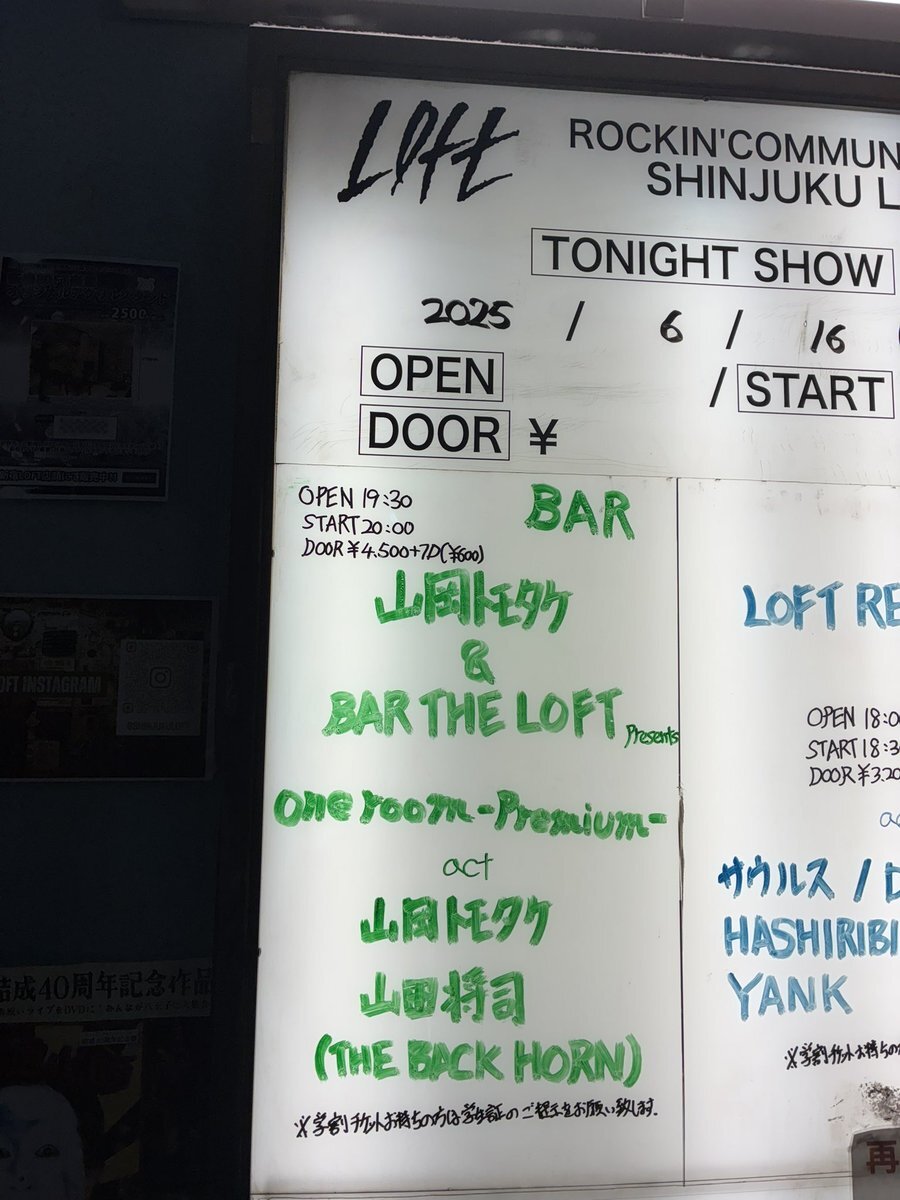 Loft
ROCKIN'COMMUN
SHINJUKU L
TONIGHT SHOW
2025 / 6 / 16
OPEN / START
DOOR ¥
OPEN 19:30
START 20:00
DOOR ¥4.500+7D(¥600)
BAR
山岡トモタケ
&
BAR THE LOFT presents
One room-Premium-
act
山岡トモタケ
山田将司
(THE BACK HORN)
※学割チケットお持ちの方は学生証のご提示をお願い致します.
LOFT RE
OPEN 18:00
START 18:3
DOOR ¥3.20
サウルス / D
HASHIRIBI
YANK
※学割チケットお持ちの
再
2500
OFT INSTAGRAM
結成40周年記念作品